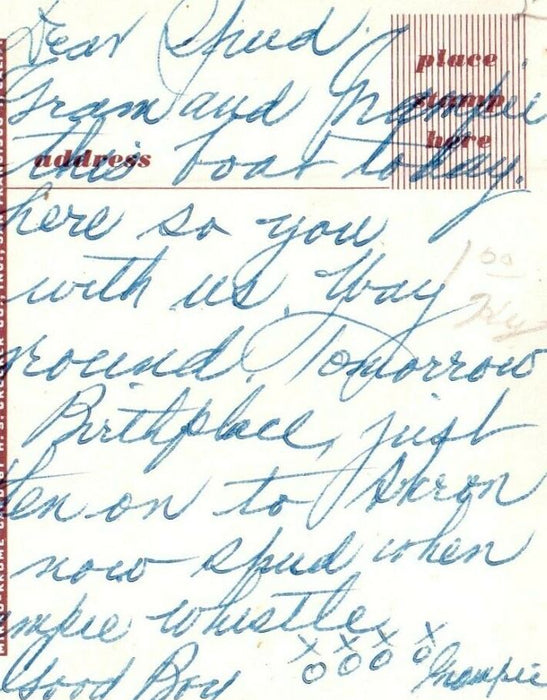 Dear Spud.
Gram and Grampie
this boat today.
here so you
with us. Way
round. Tomorrow
Birthplace, just
en on to Akron
now spud when
mpie whistles
Good Boy
x x x x
o o o o Grampie
place
stamp
here
address